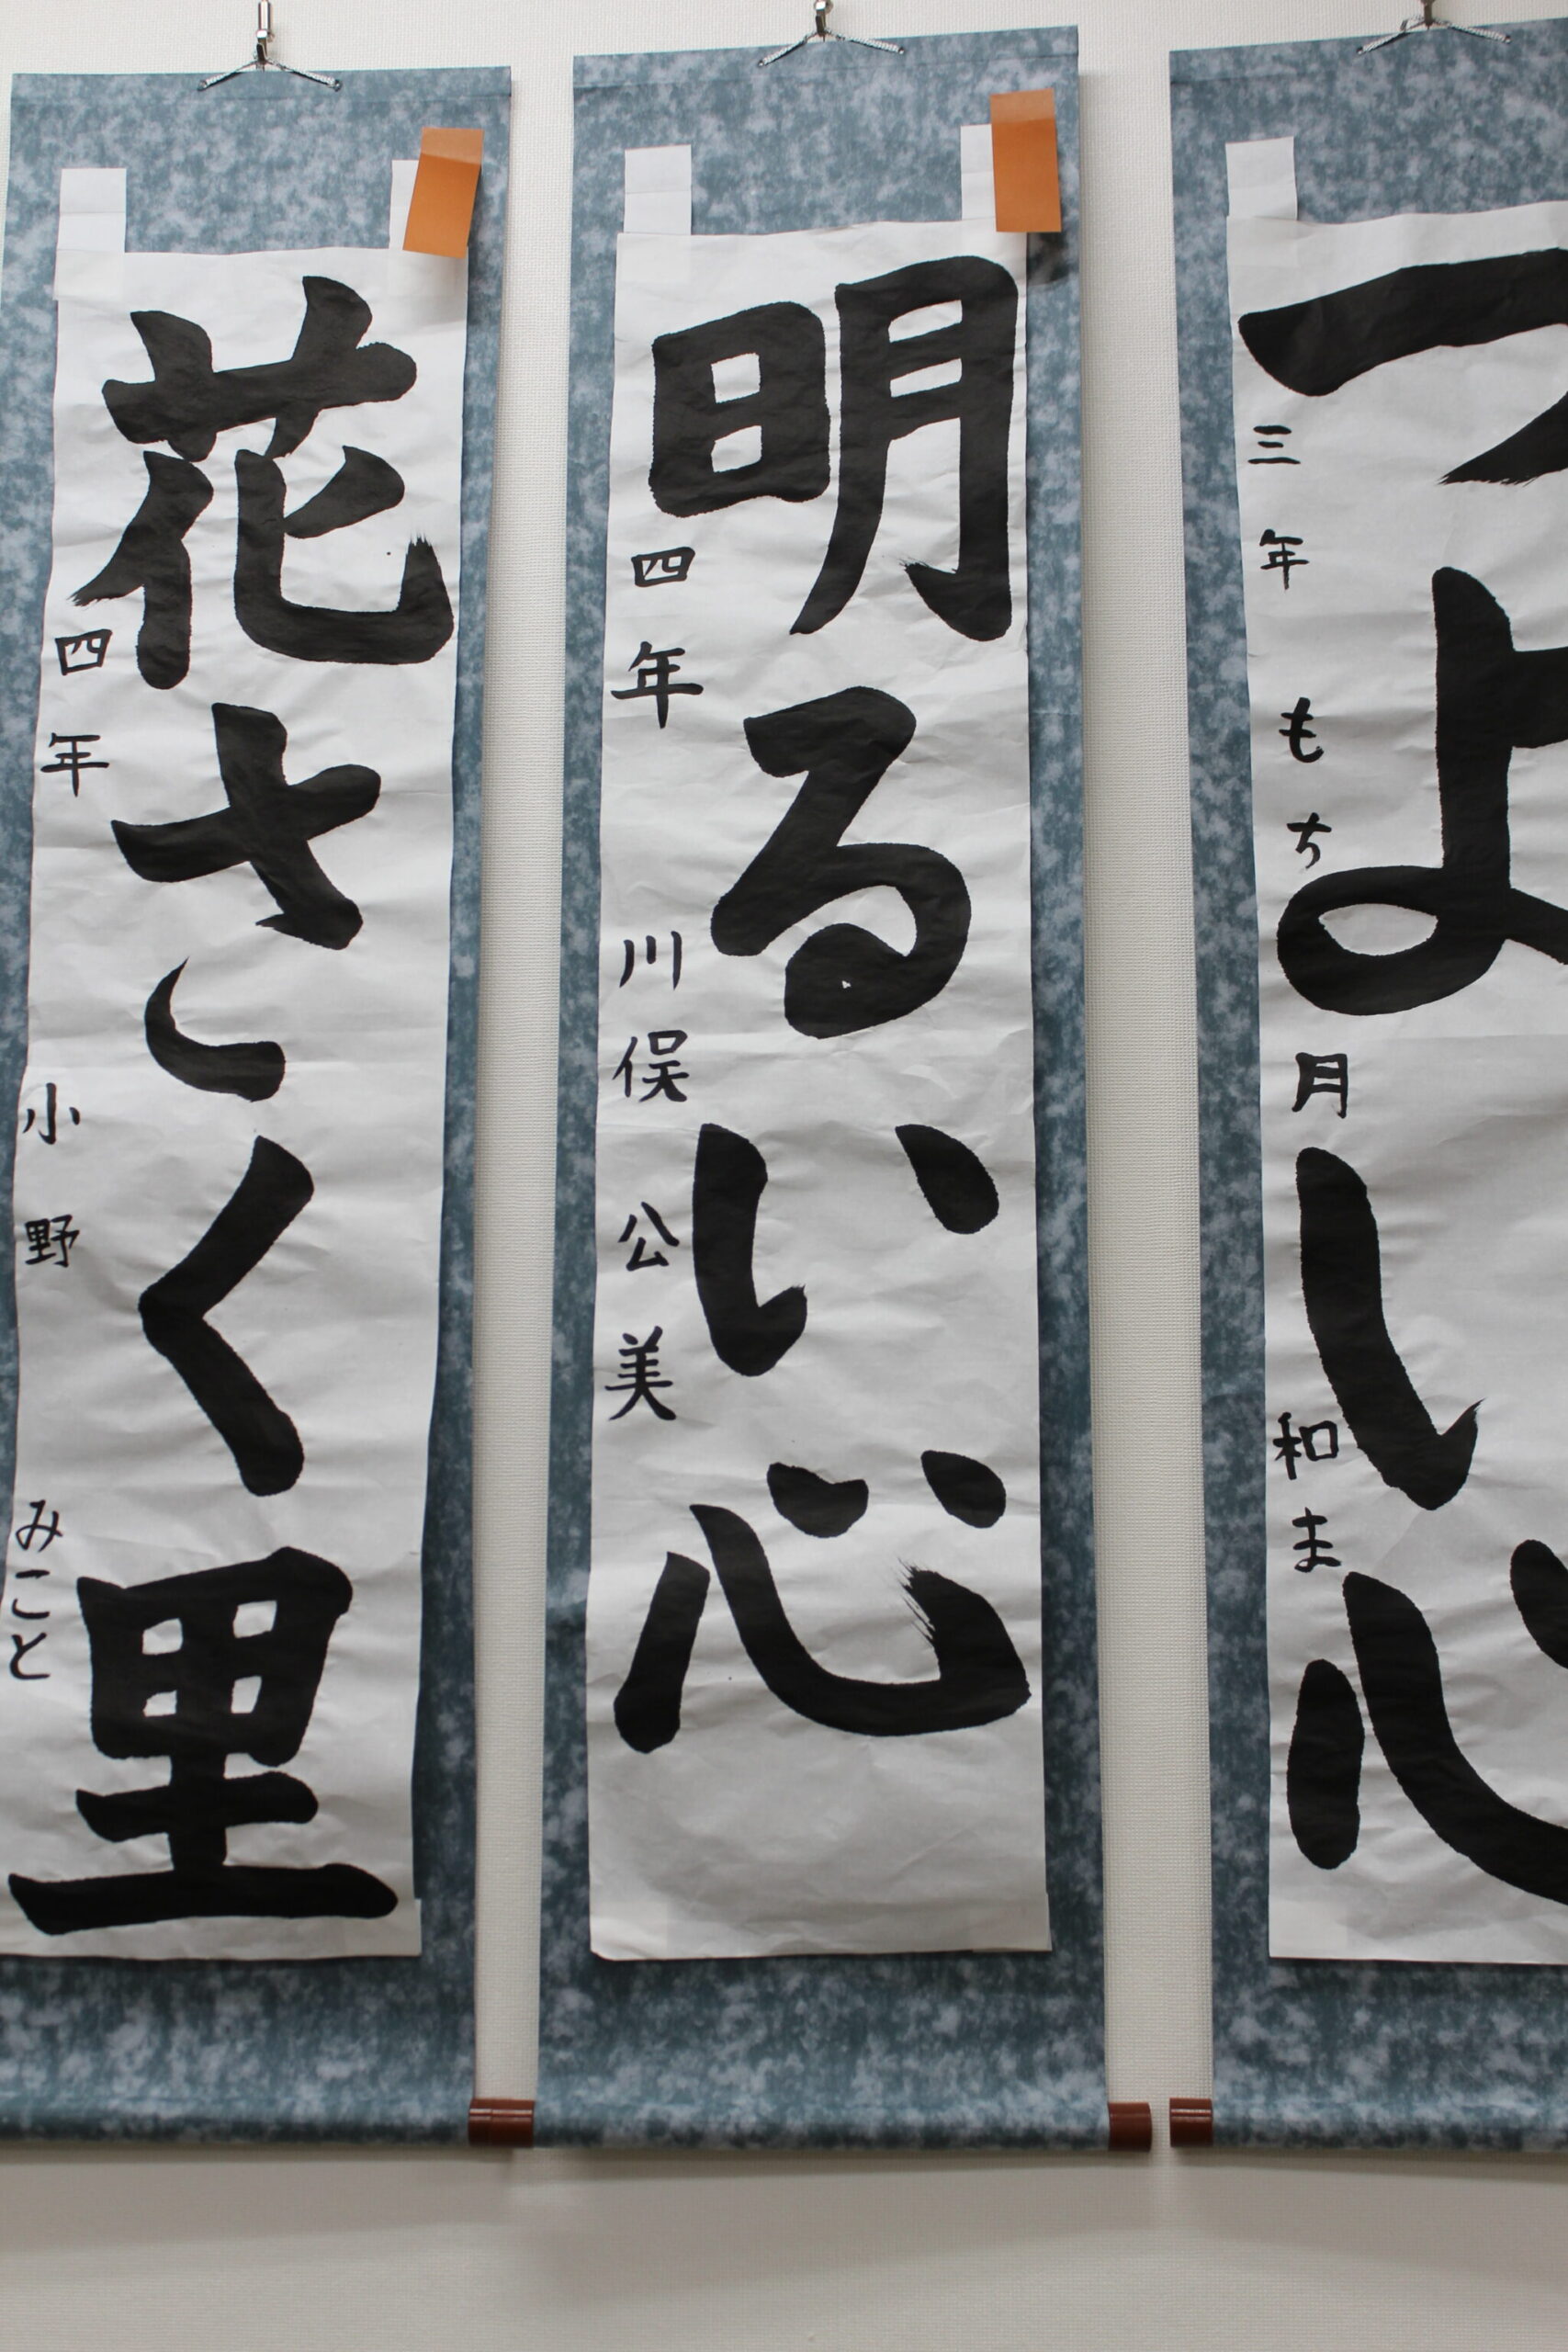 つよい心
三年 もち月 和ま
明るい心
四年 川俣 公美
花さく里
四年 小野 みこと